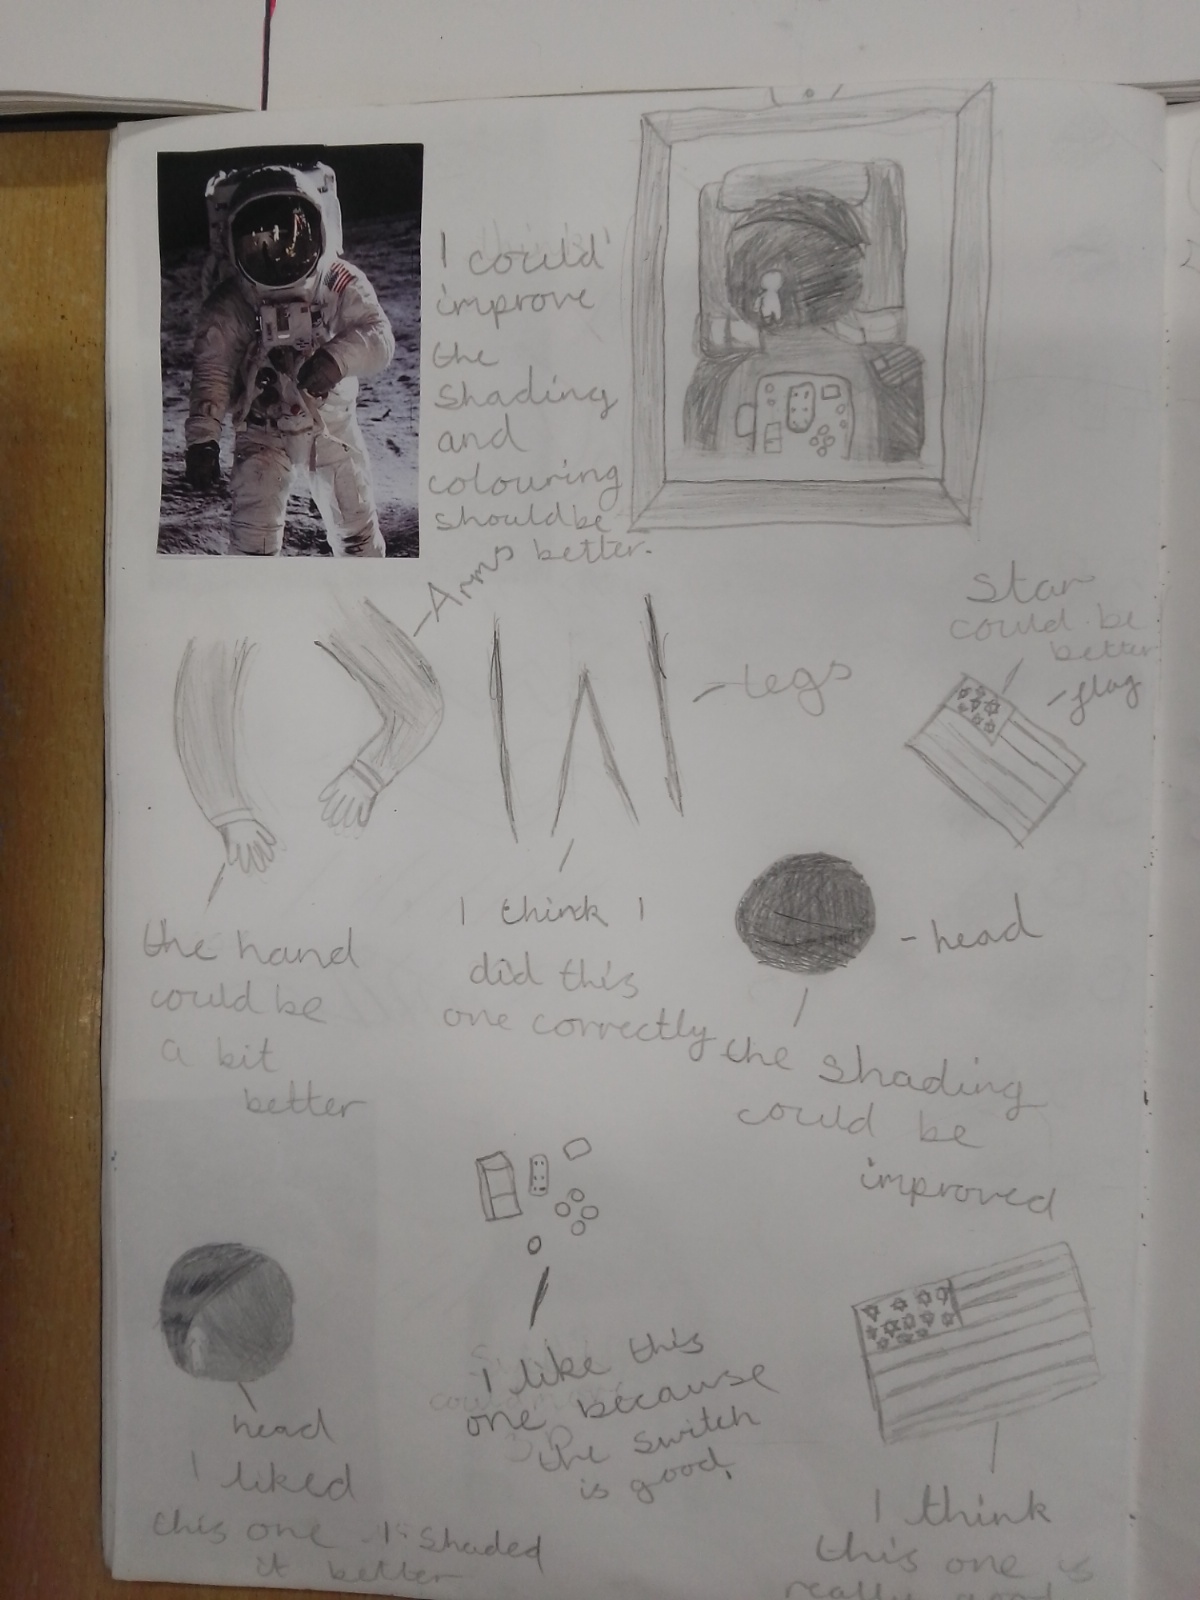 I could
improve
the
shading
and
colouring
should be
better.
- Arms
- legs
Star
could be
better
- flag
the hand
could be
a bit
better
I think I
did this
one correctly
- head
the shading
could be
improved
head
I liked
this one I shaded
it better
I like this
one because
the switch
is good.
I think
this one is
really good